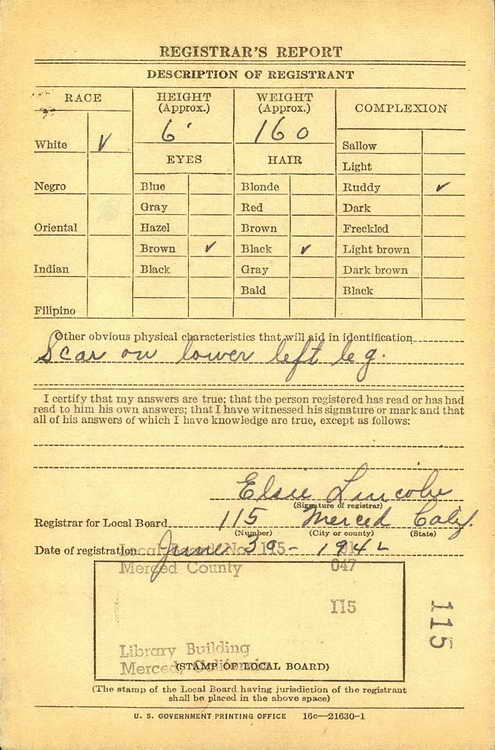 REGISTRAR'S REPORT
DESCRIPTION OF REGISTRANT
RACE
HEIGHT (Approx.)
WEIGHT (Approx.)
COMPLEXION
6'
160
White ✓
EYES
HAIR
Sallow
Light
Negro
Blue
Blonde
Ruddy ✓
Gray
Red
Dark
Oriental
Hazel
Brown
Freckled
Brown ✓
Black ✓
Light brown
Indian
Black
Gray
Dark brown
Bald
Black
Filipino
Other obvious physical characteristics that will aid in identification
Scar on lower left leg.
I certify that my answers are true; that the person registered has read or has had
read to him his own answers; that I have witnessed his signature or mark and that
all of his answers of which I have knowledge are true, except as follows:
Elsie Lincoln
(Signature of registrar)
Registrar for Local Board 115 Merced Calif.
(Number) (City or county) (State)
Date of registration June 30 - 1942
Local Board No. 115
Merced County 047
115
115
Library Building
Merced, California
(STAMP OF LOCAL BOARD)
(The stamp of the Local Board having jurisdiction of the registrant
shall be placed in the above space)
U. S. GOVERNMENT PRINTING OFFICE 16c—21630-1